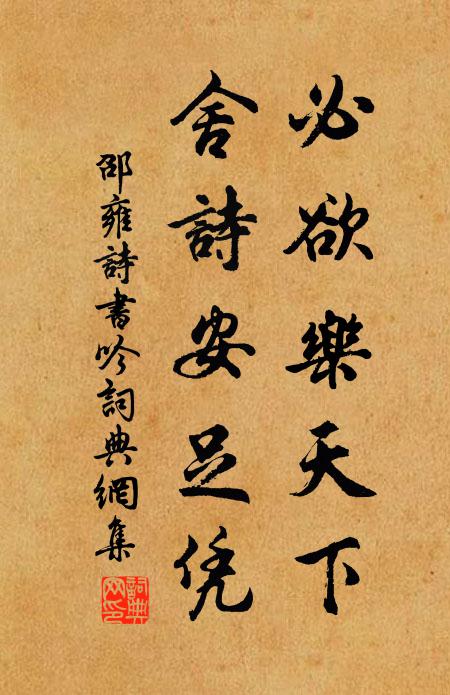 必欲樂天下
舍詩安足凭
邵雍詩書吟詞典網集
詞典網印